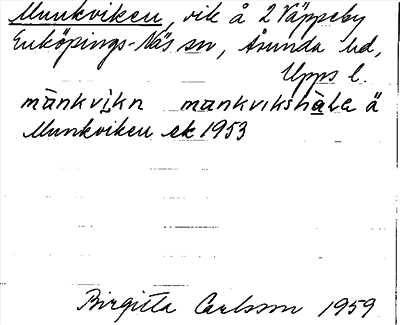 Munkviken, vik å 2 Väppeby
Enköpings-Näs sn, Åsunda hd,
Upps l.
mànkvìkn mankvikshàle ä
Munkviken ek 1953
Birgitta Carlsson 1959